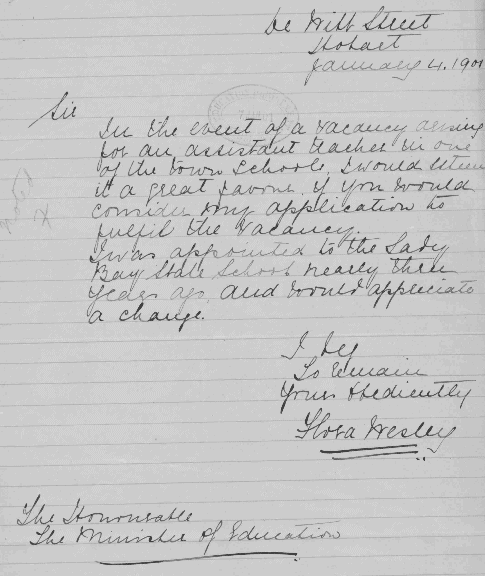 De Witt Street
Hobart
January 4. 190
Sir
In the event of a vacancy arising
for an assistant teacher in one
of the town Schools, I would esteem
it a great favour if you would
consider my application to
fulfil the vacancy.
I was appointed to the Lady
Bay State School nearly three
years ago, and would appreciate
a change.
I beg
To remain
Yours obediently
Flora Wesley
The Honourable
The Minister of Education
noted